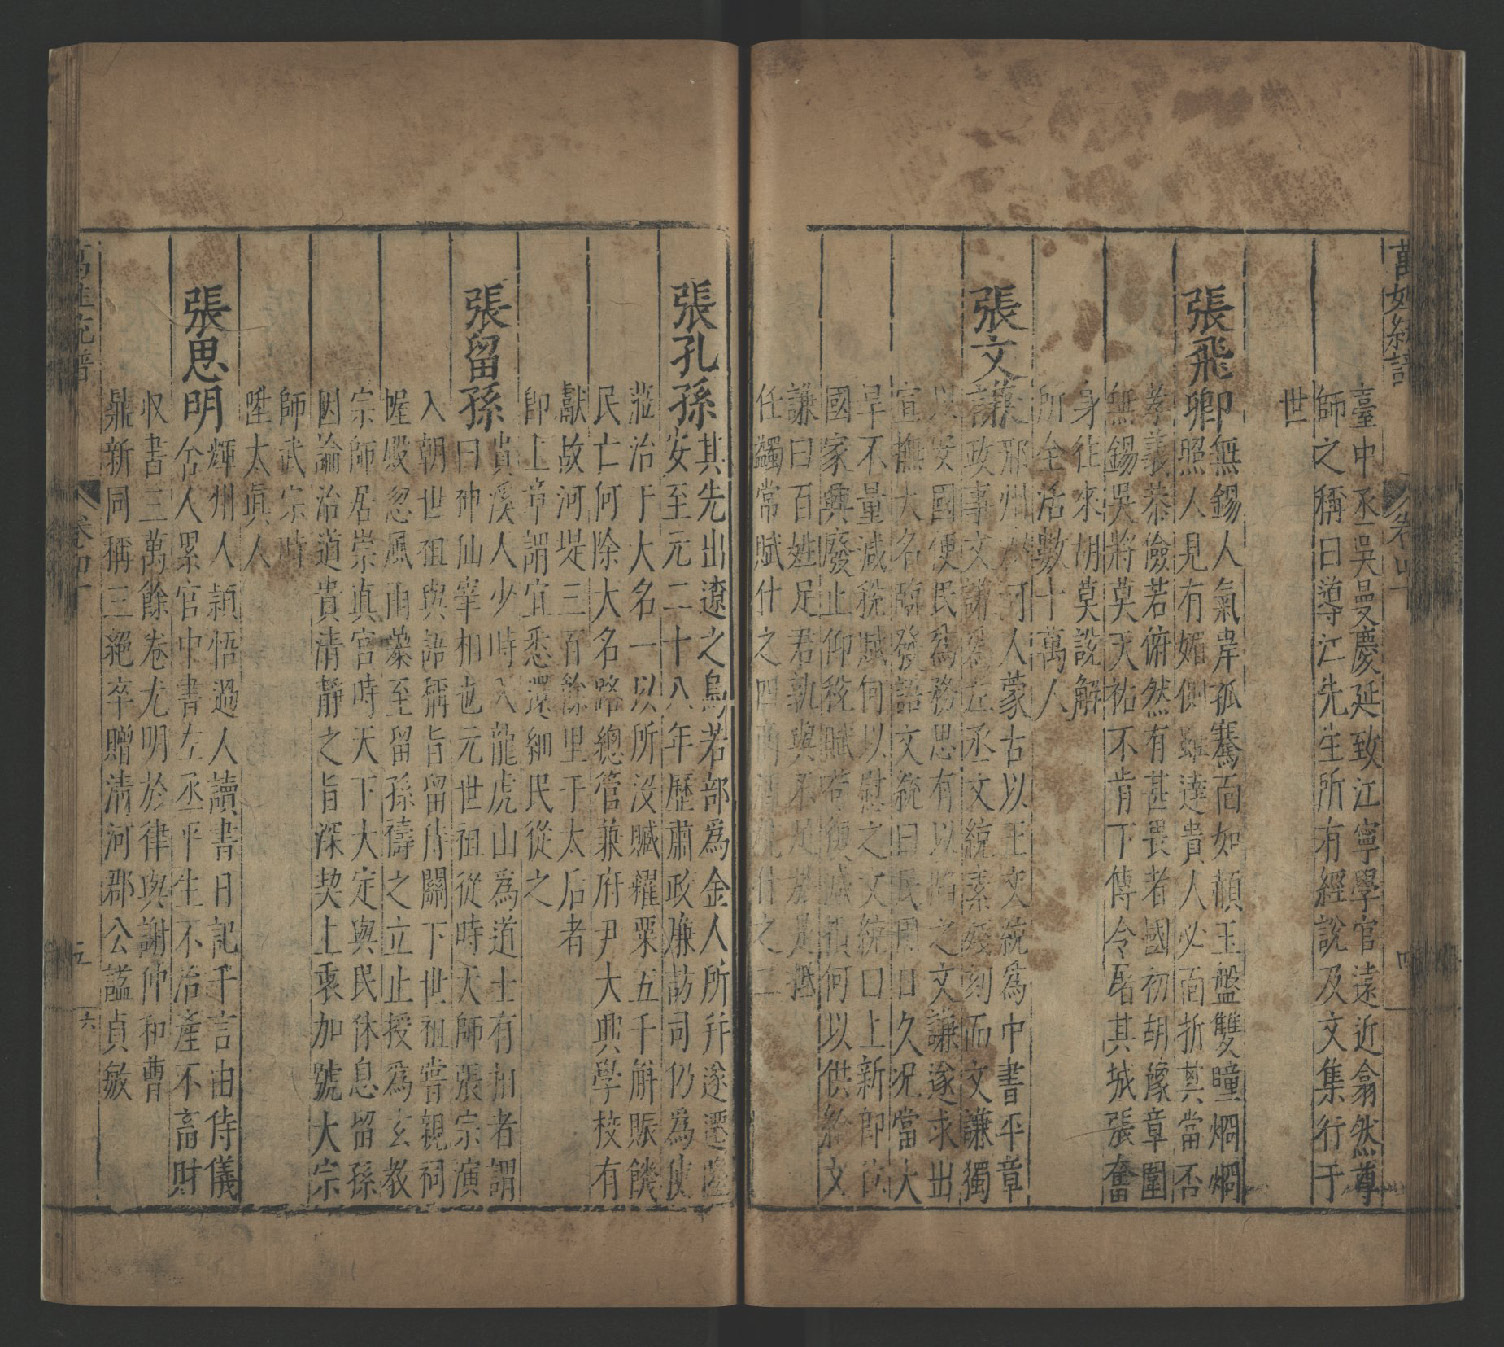 臺中丞吳曼慶延致江寧學官遠近翕然尊
師之稱曰導江先生所有經說及文集行于
世
張飛卿無錫人氣岸孤騫面如頳玉盤雙瞳炯炯
照人見有媚側雖達貴人必面折其當否
孝義恭儉若俯然有甚畏者國初胡豫章圍
無錫吳將莫天祐不肯下傳令屠其城張奮
身往來胡莫說解
所全活數十萬人
張文謙邢州人蒙古以王文統為中書平章
政事文謙為左丞文統素忌刻而文謙獨
以安國便民為務思有以之文謙遂求出
宣撫大名臨發語文統曰民困日久況當大
旱不量減稅賦何以慰之文統曰上新即位
國家興廢止仰稅賦苟復減損何以供給文
謙曰百姓足君孰與不足於是
任蠲常賦什之四商酒稅什之二
張孔孫其先出遼之烏若部為金人所并遂遷隆
安至元二十八年歷肅政廉訪司仍為使
蒞治于大名一以所沒贓糶粟五千斛賑饑
民亡何除大名路總管兼府尹大興學校有
獻故河堤三百餘里于太后者
即上章謂宜悉還細民從之
張留孫貴溪人少時入龍虎山為道士有相者謂
曰神仙宰相也元世祖從時天師張宗演
入朝世祖與語稱旨留侍闕下世祖嘗親祠
幄殿忽風雨驟至留孫禱之立止授為玄教
宗師居崇真宮時天下大定與民休息留孫
因論治道貴清靜之旨深契上衷加號大宗
師武宗時
陞太真人
張思明輝州人穎悟過人讀書日記千言由侍儀
舍人累官中書左丞平生不治產不畜財
收書三萬餘卷尤明於律與謝仲和曹
鼎新同稱三絕卒贈清河郡公諡貞敏
卷四十
五
六